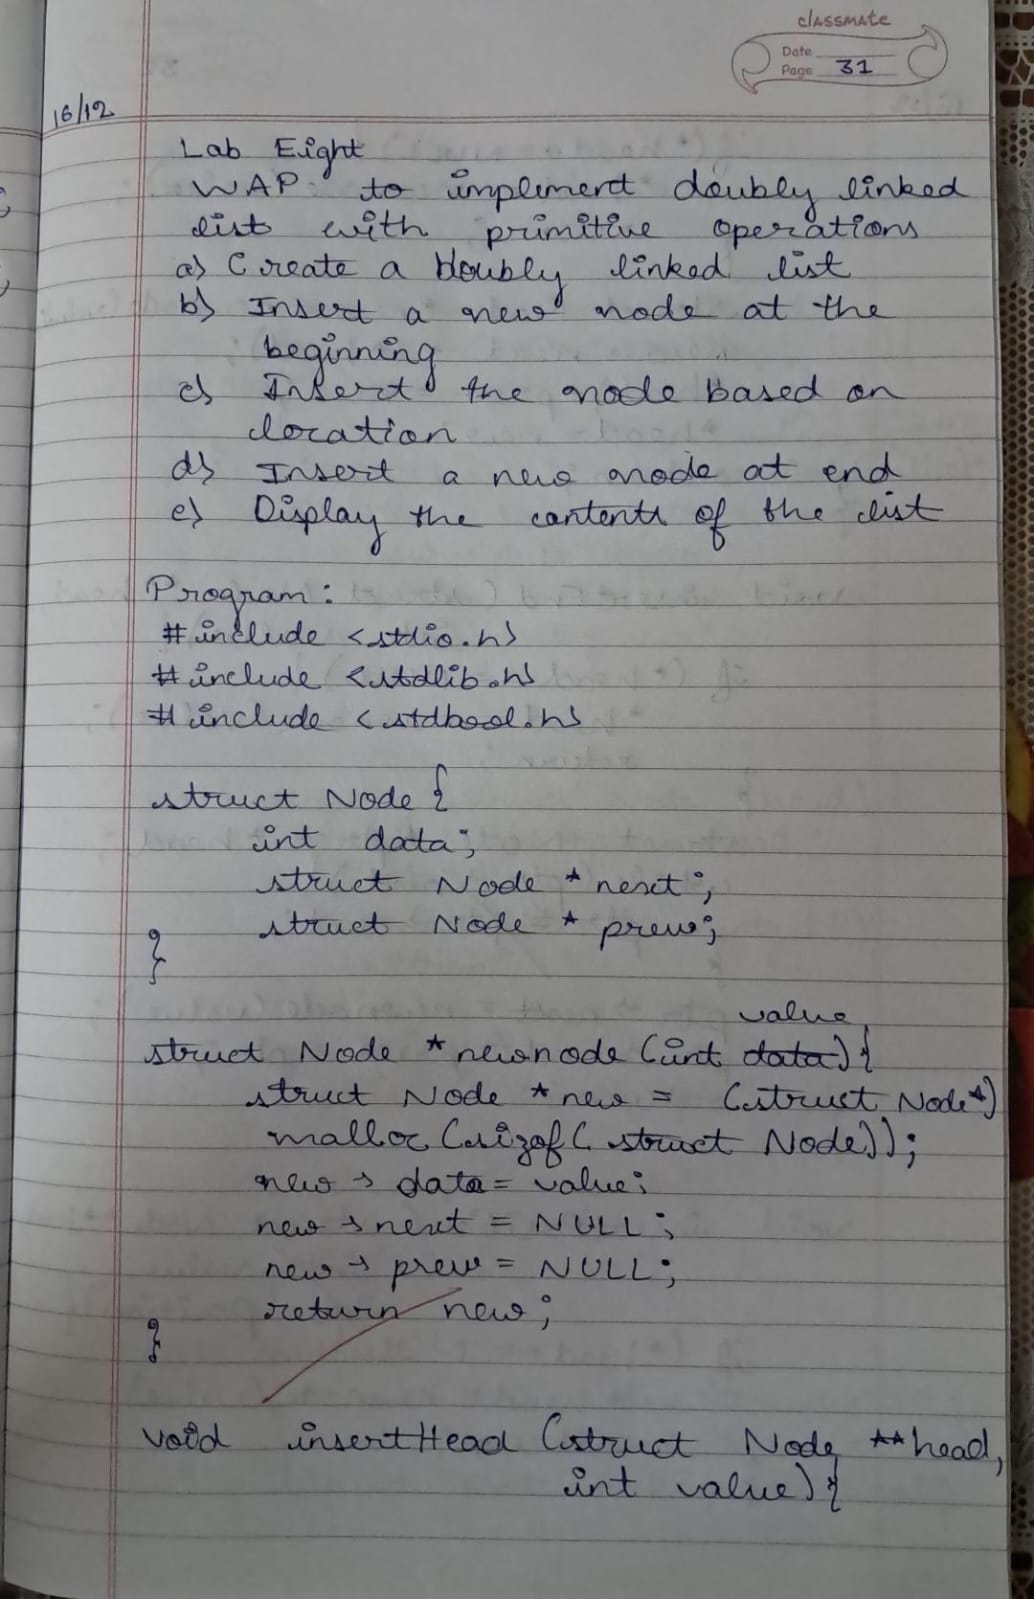 classmate
Date
Page 31
16/12
Lab Eight
WAP to implement doubly linked
list with primitive operations
a) Create a doubly linked list
b) Insert a new node at the
beginning
c) Insert the node based on
location
d) Insert a new node at end
e) Display the contents of the list
Program:
#include <stdio.h>
#include <stdlib.h>
#include <stdbool.h>
struct Node {
int data;
struct Node * next;
struct Node * prev;
}
value
struct Node * newnode (int data) {
struct Node * new = (struct Node*)
malloc (sizof( struct Node));
new → data = value;
new → next = NULL;
new → prev = NULL;
return new;
}
void insertHead (struct Node **head,
int value) {